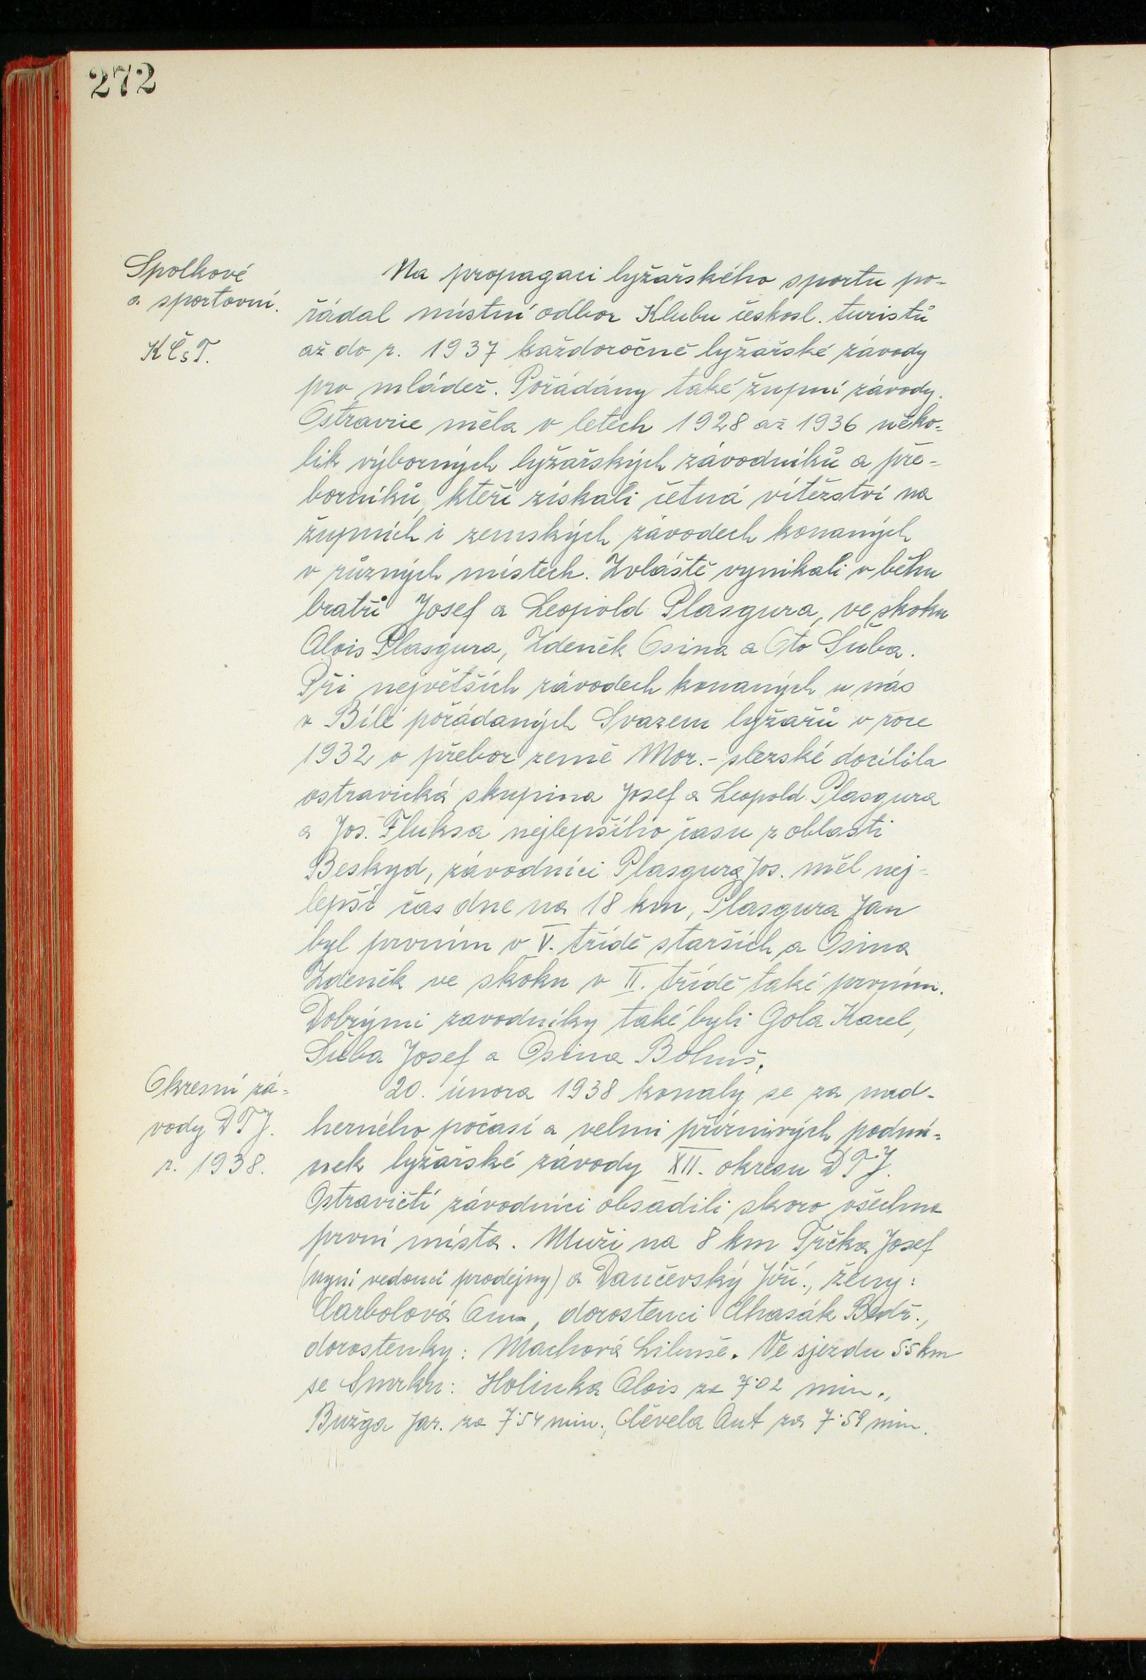 272
Spolkové
a sportovní.
KČsT.
Na propagaci lyžařského sportu po-
řádal místní odbor Klubu českosl. turistů
až do r. 1937 každoročně lyžařské závody
pro mládež. Pořádány také župní závody.
Ostravice měla v letech 1928 až 1936 něko-
lik výborných lyžařských závodníků a pře-
borníků, kteří získali četná vítězství na
župních i zemských závodech konaných
v různých místech. Zvláště vynikali v běhu
bratři Josef a Leopold Plasgura, ve skoku
Alois Plasgura, Zdeněk Osina a Oto Šuba.
Při největších závodech konaných u nás
v Bílé pořádaných Svazem lyžařů v roce
1932 o přebor země Mor.-slezské docílila
ostravická skupina Josef a Leopold Plasgura
a Jos. Fluksa nejlepšího času z oblasti
Beskyd, závodníci Plasgura Jos. měl nej-
lepší čas dne na 18 km, Plasgura Jan
byl prvním v V. třídě starších a Osina
Zdeněk ve skoku v II. třídě také prvním.
Dobrými zavodníky také byli Gola Karel,
Šuba Josef a Osina Bohuš.
Okresní zá-
vody DTJ.
r. 1938.
20. února 1938 konaly se za nád-
herného počasí a velmi příznivých podmí-
nek lyžařské závody XII. okresu DTJ.
Ostravičtí závodníci obsadili skoro všechna
první místa. Muži na 8 km Trčka Josef
(nyní vedoucí prodejny) a Dančevský Jiří., ženy:
Carbolová Anna, dorostenci Chasák Bedř.,
dorostenky: Machová Libuše. Ve sjezdu 55 km
se Smrku: Holinka Alois za 7:02 min.,
Bužga Jar. za 7:54 min., Člěvela Ant za 7:59 min.